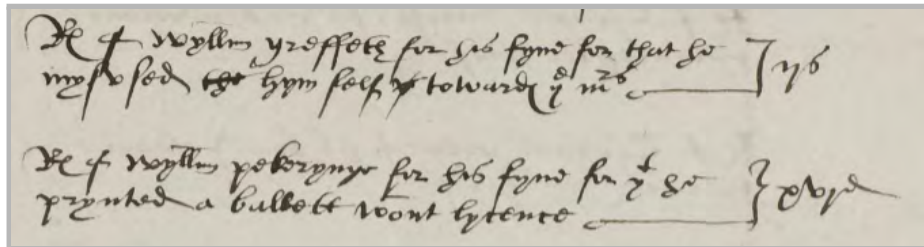 Rd of Wyllm greffeth for his fyne for that he
mysused the hym self toward ye mrs ijs
Rd of Wyllm pekerynge for his fyne for yt he
prynted a ballett wtout lycence xvjd